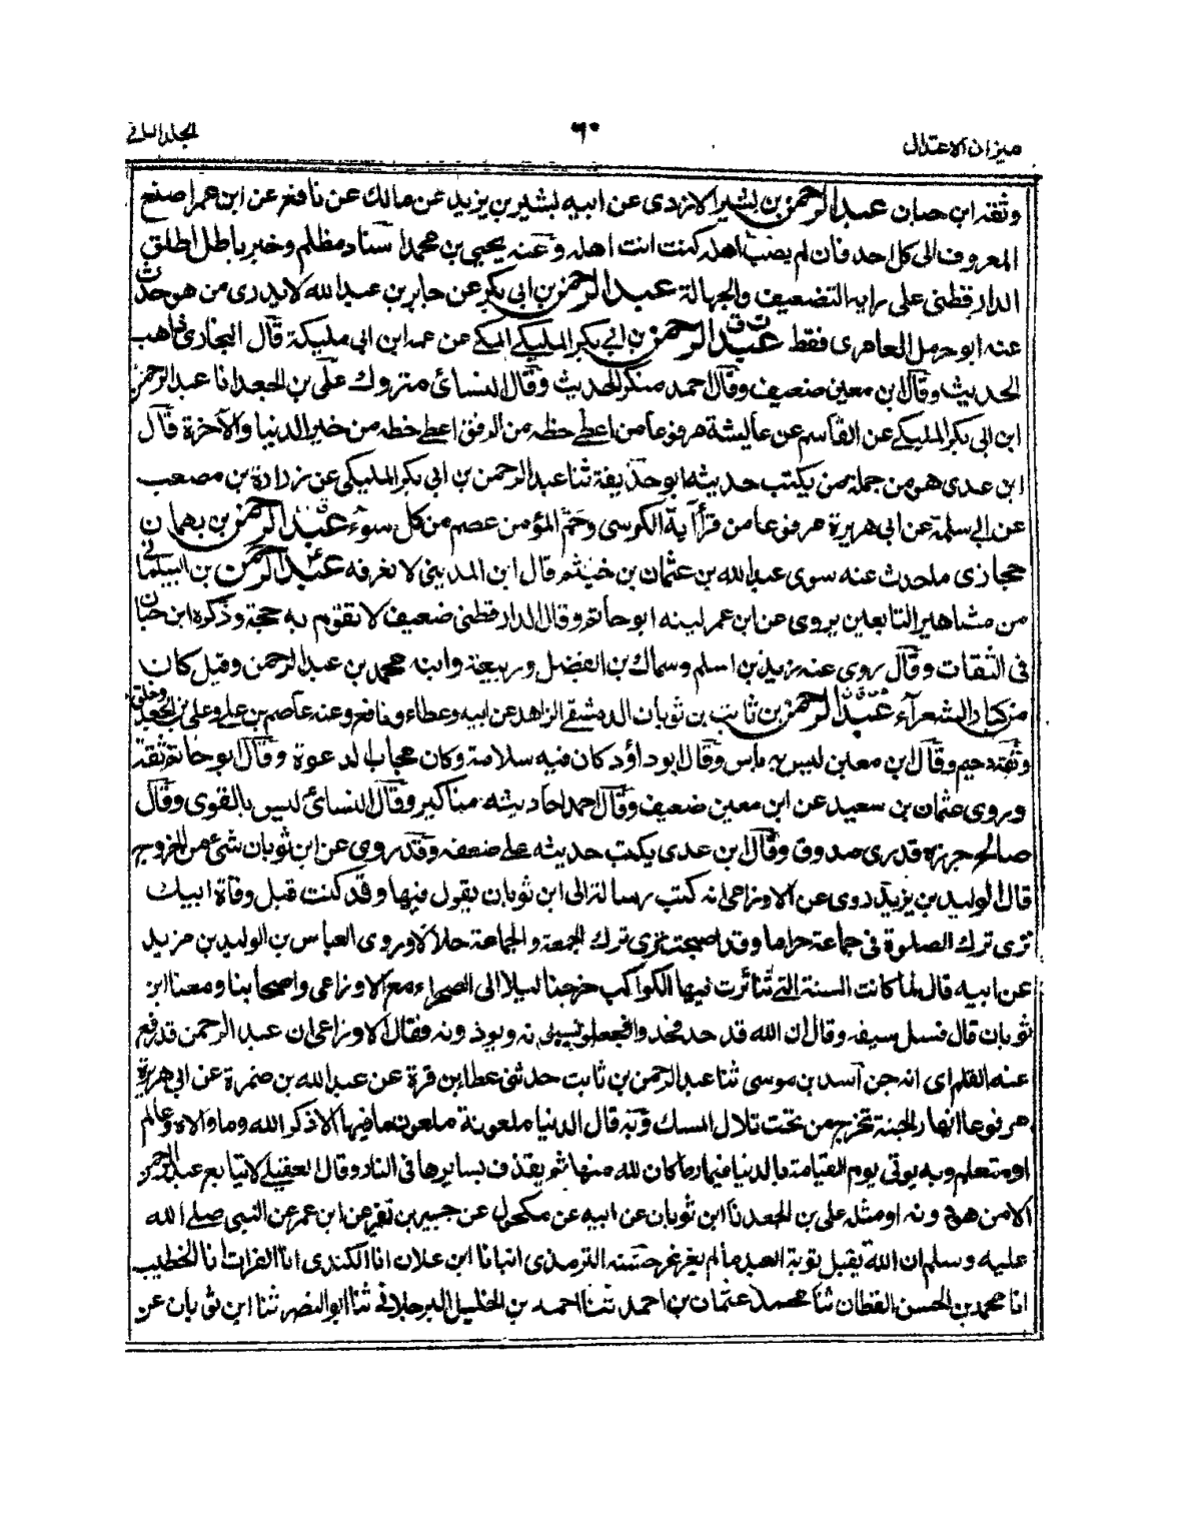 ميزان الاعتدال
٦٠
المجلد الثاني
وثقه ابن حبان عبد الرحمن بن بشير الازدى عن ابيه بشير بن يزيد عن مالك عن نافع عن ابن عمر اصنع
المعروف الى كل احد فان لم يصب اهله كنت انت اهله وعنه يحيى بن محمد اسناد مظلم وخبر باطل اطلق
الدارقطنى على رايه التضعيف والجهالة عبد الرحمن بن ابى بكر عن جابر بن عبد الله لا يدرى من هو حدث
عنه ابو حرمل العامرى فقط عبد الرحمن بن ابى بكر المليكى المكى عن عمه ابن ابى مليكة قال البخارى ذاهب
الحديث وقال ابن معين ضعيف وقال احمد منكر الحديث وقال النسائ متروك على بن الجعد انا عبد الرحمن
ابن ابى بكر المليكى عن القاسم عن عايشة مرفوعا من اعطى حظه من الرفق اعطى حظه من خير الدنيا والآخرة قال
ابن عدى هو من جملة من يكتب حديثه ابو حذيفة ثنا عبد الرحمن بن ابى بكر المليكى عن زرارة بن مصعب
عن ابى سلمة عن ابى هريرة مرفوعا من قرأ آية الكرسى وحم المؤمن عصم من كل سوء عبد الرحمن بن بهمان
حجازى ما حدث عنه سوى عبد الله بن عثمان بن خيثم قال ابن المدينى لا نعرفه عبد الرحمن بن البيلمانى
من مشاهير التابعين يروى عن ابن عمر لينه ابو حاتم وقال الدارقطنى ضعيف لا تقوم به حجة وذكره ابن حبان
فى الثقات وقال روى عنه زيد بن اسلم وسماك بن الفضل وربيعة وابنه محمد بن عبد الرحمن وقيل كان
من كبار الشعرآء عبد الرحمن بن ثابت بن ثوبان الدمشقى الزاهد عن ابيه وعطاء ونافع وعنه عاصم بن على وعلى بن الجعد وخلق
وثقه دحيم وقال ابن معين ليس به باس وقال ابو داؤد كان فيه سلامة وكان مجاب الدعوة وقال ابو حاتم ثقة
وروى عثمان بن سعيد عن ابن معين ضعيف وقال احمد احاديثه مناكير وقال النسائ ليس بالقوى وقال
صالح جزرة قدرى صدوق وقال ابن عدى يكتب حديثه على ضعفه وقد روى عن ابن ثوبان شئ من الخروج
قال الوليد بن يزيد روى عن الاوزاعى انه كتب رسالة الى ابن ثوبان يقول فيها وقد كنت قبل وفاة ابيك
ترى ترك الصلوة فى جماعة حراما وقد اصبحت ترى ترك الجمعة والجماعة حلالا وروى العباس بن الوليد بن مزيد
عن ابيه قال لما كانت السنة التى تناثرت فيها الكواكب خرجنا ليلا الى الصحراء مع الاوزاعى واصحابنا ومعنا ابن
ثوبان قال فسل سيفه وقال ان الله قد جد فجدوا فجعلوا يسبونه ويوذونه وفقال الاوزاعى ان عبد الرحمن قد رفع
عنه القلم اى انه جن آسد بن موسى ثنا عبد الرحمن بن ثابت حدثنى عطا بن قرة عن عبد الله بن ضمرة عن ابى هريرة
مرفوعا انهار الجنة تخرج من تحت تلال المسك وبه قال الدنيا ملعونة ملعون ما فيها الا ذكر الله وما والاه وعالم
او متعلم وبه يوتى يوم القيامة بالدنيا فيماز ما كان لله منها ثم يقذف بسايرها فى النار وقال العقيلى لا يتابع عبد الرحمن
الا من هو دونه او مثله على بن الجعد نا ابن ثوبان عن ابيه عن مكحول عن جبير بن نفير عن ابن عمر عن النبى صلى الله
عليه وسلم ان الله يقبل توبة العبد ما لم يغرغر حسنه الترمذى انبانا ابن علان انا الكندى انا القزاز انا الخطيب
انا محمد بن الحسن القطان ثنا محمد عثمان بن احمد ثنا احمد بن الخليل البرجلانى ثنا ابو النضر ثنا ابن ثوبان عن